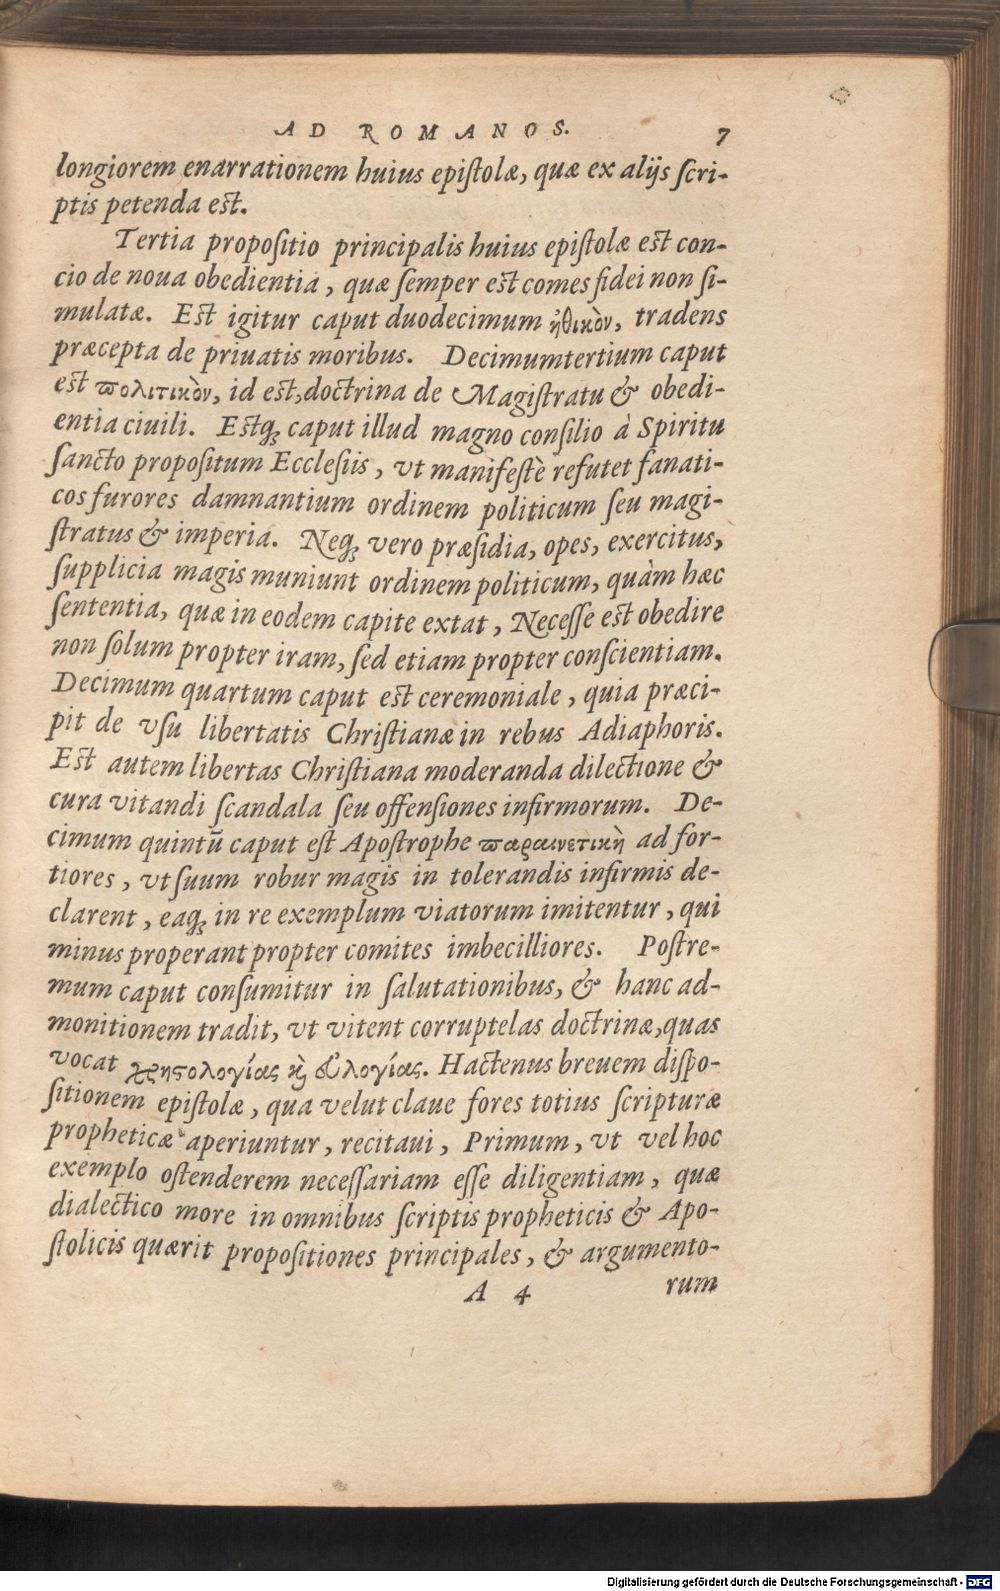 AD ROMANOS. 7
longiorem enarrationem huius epiſtolæ, quæ ex alijs ſcri-
ptis petenda eſt.
Tertia propoſitio principalis huius epiſtolæ eſt con-
cio de noua obedientia, quæ ſemper eſt comes fidei non ſi-
mulatæ. Eſt igitur caput duodecimum ἠθικὸν, tradens
præcepta de priuatis moribus. Decimumtertium caput
eſt πολιτικὸν, id eſt, doctrina de Magiſtratu & obedi-
entia ciuili. Eſtq́ꝫ caput illud magno conſilio à Spiritu
ſancto propoſitum Eccleſiis, vt manifeſtè refutet fanati-
cos furores damnantium ordinem politicum ſeu magi-
ſtratus & imperia. Neqꝫ vero præſidia, opes, exercitus,
ſupplicia magis muniunt ordinem politicum, quàm hæc
ſententia, quæ in eodem capite extat, Neceſſe eſt obedire
non ſolum propter iram, ſed etiam propter conſcientiam.
Decimum quartum caput eſt ceremoniale, quia præci-
pit de vſu libertatis Chriſtianæ in rebus Adiaphoris.
Eſt autem libertas Chriſtiana moderanda dilectione &
cura vitandi ſcandala ſeu offenſiones infirmorum. De-
cimum quintū caput eſt Apoſtrophe παραινετικὴ ad for-
tiores, vt ſuum robur magis in tolerandis infirmis de-
clarent, eaqꝫ in re exemplum viatorum imitentur, qui
minus properant propter comites imbecilliores. Poſtre-
mum caput conſumitur in ſalutationibus, & hanc ad-
monitionem tradit, vt vitent corruptelas doctrinæ, quas
vocat χρηστολογίας κỳ ευλογίας. Hactenus breuem diſpo-
ſitionem epiſtolæ, qua velut claue fores totius ſcripturæ
propheticæ aperiuntur, recitaui, Primum, vt vel hoc
exemplo oſtenderem neceſſariam eſſe diligentiam, quæ
dialectico more in omnibus ſcriptis propheticis & Apo-
ſtolicis quærit propoſitiones principales, & argumento-
A 4 rum
Digitalisierung gefördert durch die Deutsche Forschungsgemeinschaft - DFG